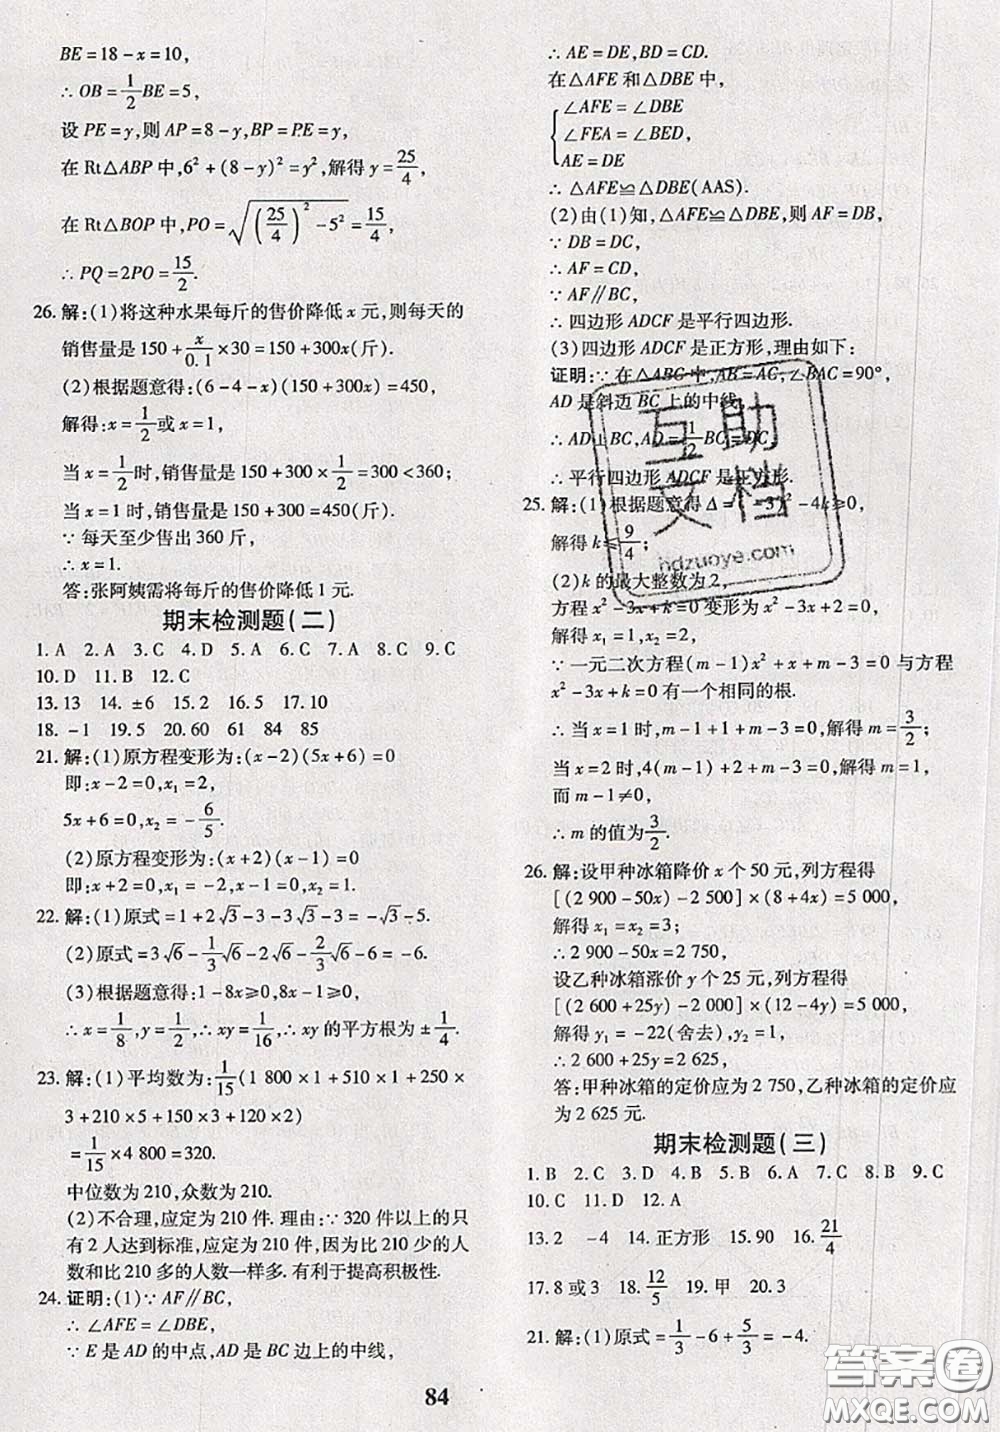 BE=18-x=10,
∴ OB=1/2 BE=5,
设 PE=y,则 AP=8-y,BP=PE=y,
在 Rt△ABP 中,6²+(8-y)²=y²,解得 y=25/4,
在 Rt△BOP 中,PO=√((25/4)²-5²)=15/4,
∴ PQ=2PO=15/2.
26.解:(1)将这种水果每斤的售价降低 x 元,则每天的
销售量是 150+x/0.1×30=150+300x(斤).
(2)根据题意得:(6-4-x)(150+300x)=450,
解得:x=1/2或 x=1,
当 x=1/2时,销售量是 150+300×1/2=300<360;
当 x=1 时,销售量是 150+300=450(斤).
∵ 每天至少售出 360 斤,
∴ x=1.
答:张阿姨需将每斤的售价降低 1 元.
期末检测题(二)
1. A 2. A 3. C 4. D 5. A 6. C 7. A 8. C 9. C
10. D 11. B 12. C
13. 13 14. ±6 15. 2 16. 5 17. 10
18. -1 19. 5 20. 60 61 84 85
21.解:(1)原方程变形为:(x-2)(5x+6)=0
即:x-2=0,x₁=2,
5x+6=0,x₂=-6/5.
(2)原方程变形为:(x+2)(x-1)=0
即:x+2=0,x₁=-2,x-1=0,x₂=1.
22.解:(1)原式=1+2√3-3-3√3+3=-√3-5.
(2)原式=3√6-1/3√6-2√6-2/3√6-6=-6.
(3)根据题意得:1-8x≥0,8x-1≥0,
∴ x=1/8,y=1/2,∴ xy=1/16,∴ xy 的平方根为±1/4.
23.解:(1)平均数为:1/15(1 800×1+510×1+250×
3+210×5+150×3+120×2)
=1/15×4 800=320.
中位数为 210,众数为 210.
(2)不合理,应定为 210 件. 理由:∵ 320 件以上的只
有 2 人达到标准,应定为 210 件,因为比 210 少的人
数和比 210 多的人数一样多. 有利于提高积极性.
24.证明:(1)∵ AF∥BC,
∴ ∠AFE=∠DBE,
∵ E 是 AD 的中点,AD 是 BC 边上的中线,
∴ AE=DE,BD=CD.
在△AFE 和△DBE 中,
∠AFE=∠DBE
∠FEA=∠BED,
AE=DE
∴ △AFE≌△DBE(AAS).
(2)由(1)知,△AFE≌△DBE,则 AF=DB,
∵ DB=DC,
∴ AF=CD,
∵ AF∥BC,
∴ 四边形 ADCF 是平行四边形.
(3)四边形 ADCF 是正方形,理由如下:
证明:∵ 在△ABC 中,AB=AC,∠BAC=90°,
AD 是斜边 BC 上的中线,
∴ AD⊥BC,AD=1/2BC=DC,
∴ 平行四边形 ADCF 是正方形.
25.解:(1)根据题意得 Δ=(-3)²-4k≥0,
解得 k≤9/4;
(2)k 的最大整数为 2,
方程 x²-3x+k=0 变形为 x²-3x+2=0,
解得 x₁=1,x₂=2,
∵ 一元二次方程(m-1)x²+x+m-3=0 与方程
x²-3x+k=0 有一个相同的根.
∴ 当 x=1 时,m-1+1+m-3=0,解得 m=3/2;
当 x=2 时,4(m-1)+2+m-3=0,解得 m=1,
而 m-1≠0,
∴ m 的值为3/2.
26.解:设甲种冰箱降价 x 个 50 元,列方程得
[(2 900-50x)-2 500]×(8+4x)=5 000,
解得 x₁=x₂=3;
∴2 900-50x=2 750,
设乙种冰箱涨价 y 个 25 元,列方程得
[(2 600+25y)-2 000]×(12-4y)=5 000,
解得 y₁=-22(舍去),y₂=1,
∴2 600+25y=2 625,
答:甲种冰箱的定价应为 2 750,乙种冰箱的定价应
为 2 625 元.
期末检测题(三)
1. B 2. C 3. D 4. B 5. B 6. A 7. C 8. B 9. C
10. C 11. D 12. A
13. 2 -4 14. 正方形 15. 90 16. 21/4
17. 8 或 3 18. 12/5 19. 甲 20. 3
21.解:(1)原式=1/3-6+5/3=-4.
84
互助
文档
hdzuoye.com
答案圈
MXQE.COM